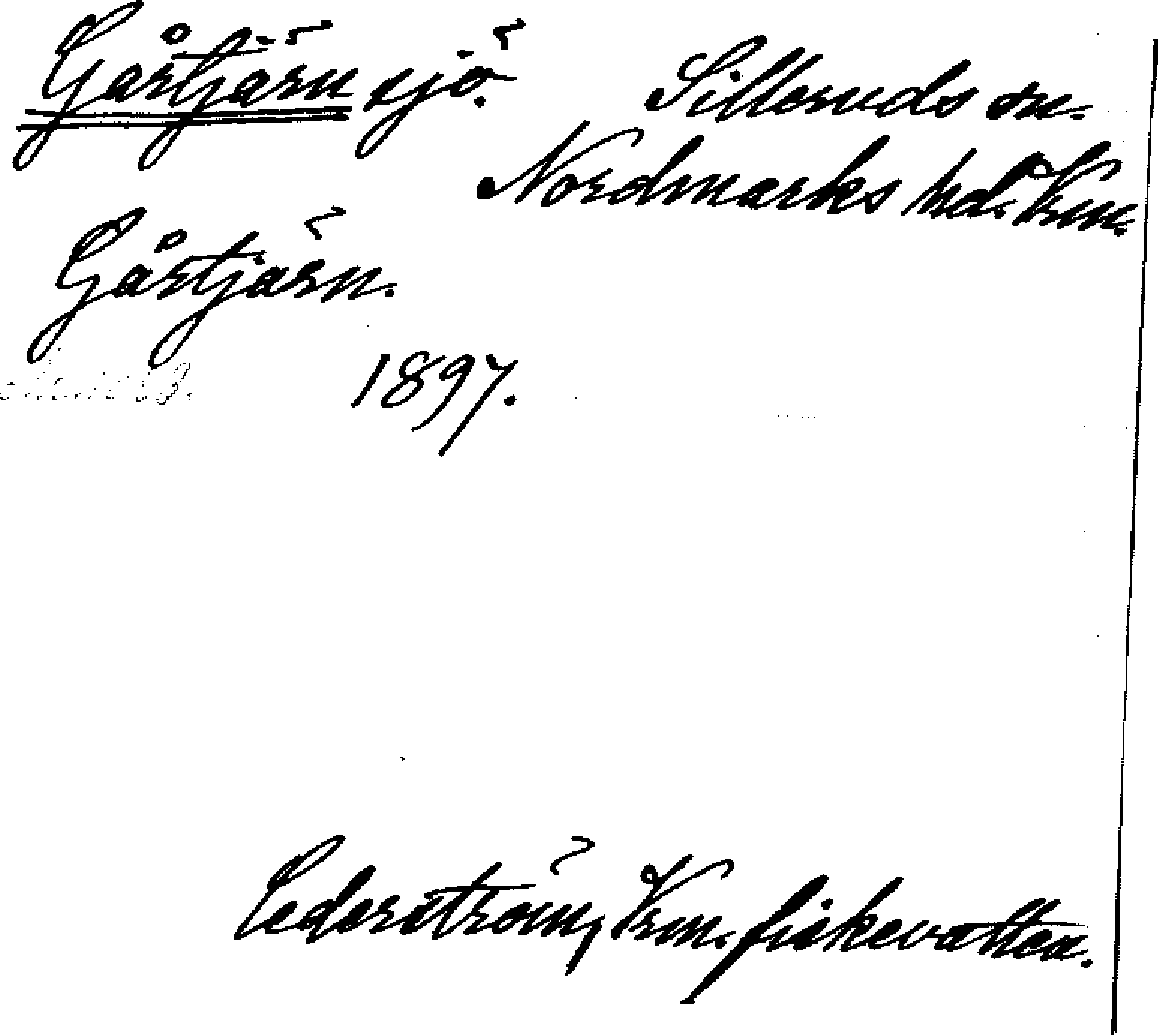 Gårtjärn sjö. Silleruds sn.
Nordmarks hd. Vrm.
Gårtjärn.
1897.
Cederström, Vrm. fiskevatten.